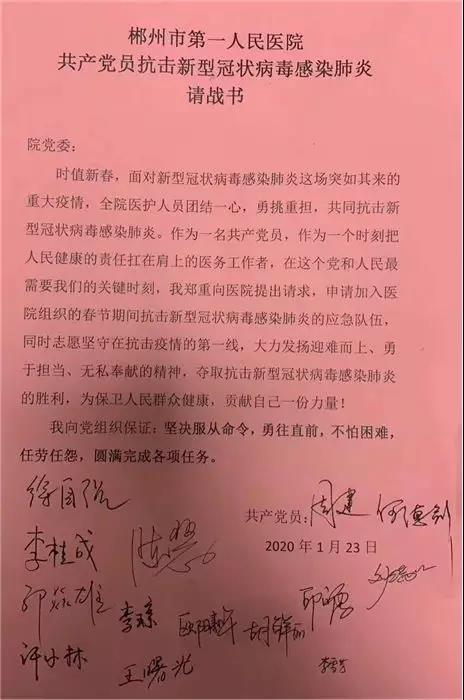 郴州市第一人民医院
共产党员抗击新型冠状病毒感染肺炎
请战书
院党委：
时值新春，面对新型冠状病毒感染肺炎这场突如其来的
重大疫情，全院医护人员团结一心，勇挑重担，共同抗击新
型冠状病毒感染肺炎。作为一名共产党员，作为一个时刻把
人民健康的责任扛在肩上的医务工作者，在这个党和人民最
需要我们的关键时刻，我郑重向医院提出请求，申请加入医
院组织的春节期间抗击新型冠状病毒感染肺炎的应急队伍，
同时志愿坚守在抗击疫情的第一线，大力发扬迎难而上、勇
于担当、无私奉献的精神，夺取抗击新型冠状病毒感染肺炎
的胜利，为保卫人民群众健康，贡献自己一份力量！
我向党组织保证：坚决服从命令，勇往直前，不怕困难，
任劳任怨，圆满完成各项任务。
共产党员：周建
2020 年 1 月 23 日
李桂成
许小林
王曙光